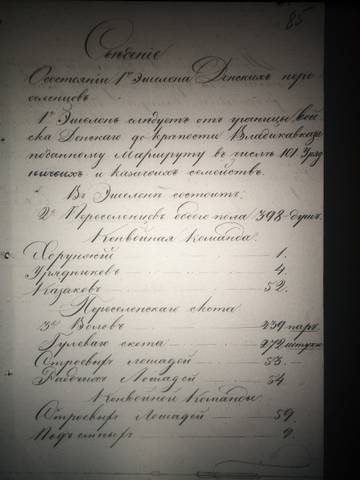 85
Свѣдѣніе
О состояніи 1го Эшелона Донскихъ пере
селенцовъ
1й Эшелонъ слѣдуетъ отъ границы Вой
ска Донскаго до крѣпости Владикавказа
по данному Маршруту въ числѣ 101 Уряд
ничьихъ и Казачьихъ семействъ.
Въ Эшелонѣ состоитъ:
Переселенцовъ обоего пола 398 душъ.
Конвойная Команда.
Хорунжій 1.
Урядниковъ 4.
Казаковъ 52.
Переселенскаго скота
Воловъ 239 паръ.
Гулеваго скота 272 штуки
Строевыхъ лошадей 53.
Рабочихъ Лошадей 54
Конвойной Команды
Строевыхъ Лошадей 59.
Подъемныхъ 9.